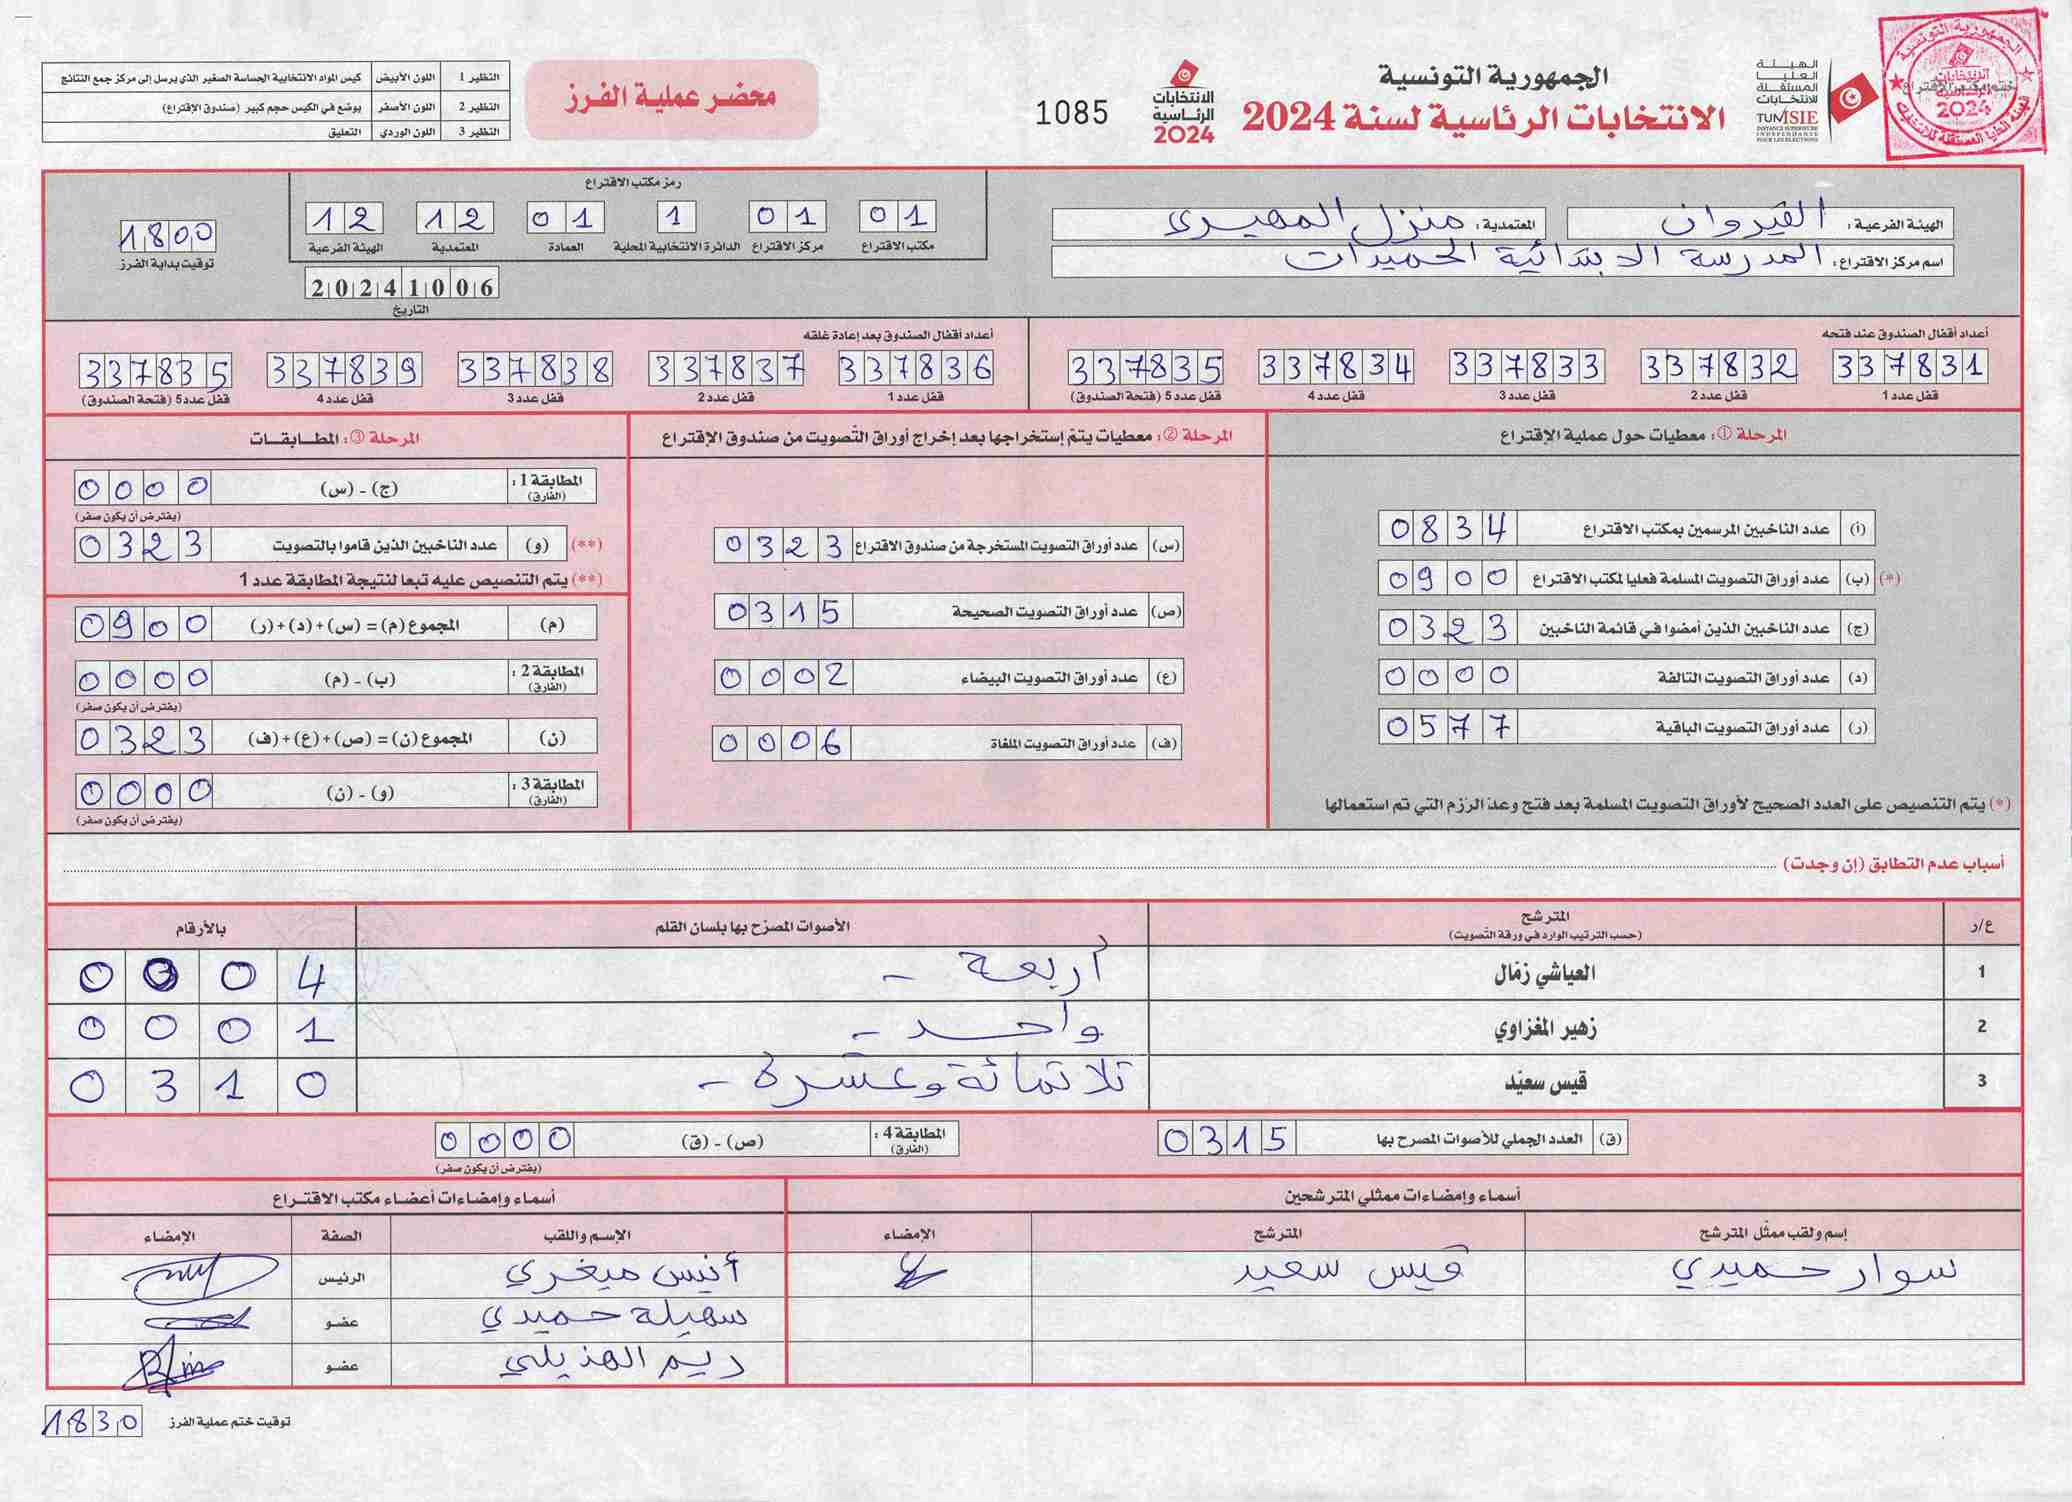 الجمهورية التونسية
الانتخابات الرئاسية لسنة 2024
الهيئة
العليا
المستقلة
للانتخابات
TUNISIE
INSTANCE SUPERIEURE
INDEPENDANTE
POUR LES ELECTIONS
ختم مكتب الاقتراع
الجمهورية التونسية
الانتخابات
الرئاسية
2024
الانتخابات
الرئاسية
2024
1085
محضر عملية الفرز
النظير 1 اللون الأبيض كيس المواد الانتخابية الحساسة الصغير الذي يرسل إلى مركز جمع النتائج
النظير 2 اللون الأصفر يوضع في الكيس حجم كبير (صندوق الإقتراع)
النظير 3 اللون الوردي التعليق
الهيئة الفرعية : القيروان المعتمدية : منزل المهيري
اسم مركز الاقتراع : المدرسة الابتدائية الحميدات
رمز مكتب الاقتراع
01 مكتب الاقتراع
01 مركز الاقتراع
1 الدائرة الانتخابية المحلية
01 العمادة
12 المعتمدية
12 الهيئة الفرعية
20241006
التاريخ
1800
توقيت بداية الفرز
أعداد أقفال الصندوق عند فتحه
337831 337832 337833 337834 337835
قفل عدد 1 قفل عدد 2 قفل عدد 3 قفل عدد 4 قفل عدد 5 (فتحة الصندوق)
أعداد أقفال الصندوق بعد إعادة غلقه
337836 337837 337838 337839 337835
قفل عدد 1 قفل عدد 2 قفل عدد 3 قفل عدد 4 قفل عدد 5 (فتحة الصندوق)
المرحلة ①: معطيات حول عملية الإقتراع
(أ) عدد الناخبين المرسمين بمكتب الاقتراع 0834
(*) (ب) عدد أوراق التصويت المسلمة فعليا لمكتب الاقتراع 0900
(ج) عدد الناخبين الذين أمضوا في قائمة الناخبين 0323
(د) عدد أوراق التصويت التالفة 0000
(ر) عدد أوراق التصويت الباقية 0577
(*) يتم التنصيص على العدد الصحيح لأوراق التصويت المسلمة بعد فتح وعدّ الرّزم التي تم استعمالها
المرحلة ②: معطيات يتمّ إستخراجها بعد إخراج أوراق التّصويت من صندوق الإقتراع
(س) عدد أوراق التصويت المستخرجة من صندوق الاقتراع 0323
(ص) عدد أوراق التصويت الصحيحة 0315
(ع) عدد أوراق التصويت البيضاء 0002
(ف) عدد أوراق التصويت الملغاة 0006
المرحلة ③: المطـابـقـات
المطابقة 1 : (الفارق) (ج) - (س) 0000
(يفترض أن يكون صفر)
(**) (و) عدد الناخبين الذين قاموا بالتصويت 0323
(**) يتم التنصيص عليه تبعا لنتيجة المطابقة عدد 1
(م) المجموع (م) = (س) + (د) + (ر) 0900
المطابقة 2 : (الفارق) (ب) - (م) 0000
(يفترض أن يكون صفر)
(ن) المجموع (ن) = (ص) + (ع) + (ف) 0323
المطابقة 3 : (الفارق) (و) - (ن) 0000
(يفترض أن يكون صفر)
أسباب عدم التطابق (إن وجدت)
ع/ر المترشح الأصوات المصرّح بها بلسان القلم بالأرقام
(حسب الترتيب الوارد في ورقة التّصويت)
1 العياشي زمّال أربعة - 0004
2 زهير المغزاوي واحد - 0001
3 قيس سعيّد ثلاثمائة وعشرة - 0310
(ق) العدد الجملي للأصوات المصرح بها 0315
المطابقة 4 : (الفارق) (ص) - (ق) 0000
(يفترض أن يكون صفر)
أسماء وإمضاءات ممثلي المترشحين
إسم ولقب ممثّل المترشح المترشح الإمضاء
سوار حميدي قيس سعيد
أسماء وإمضاءات أعضاء مكتب الاقتراع
الإسم واللقب الصفة الإمضاء
أنيس ميغري الرئيس
سهيلة حميدي عضو
ريم الهذيلي عضو
توقيت ختم عملية الفرز 1830